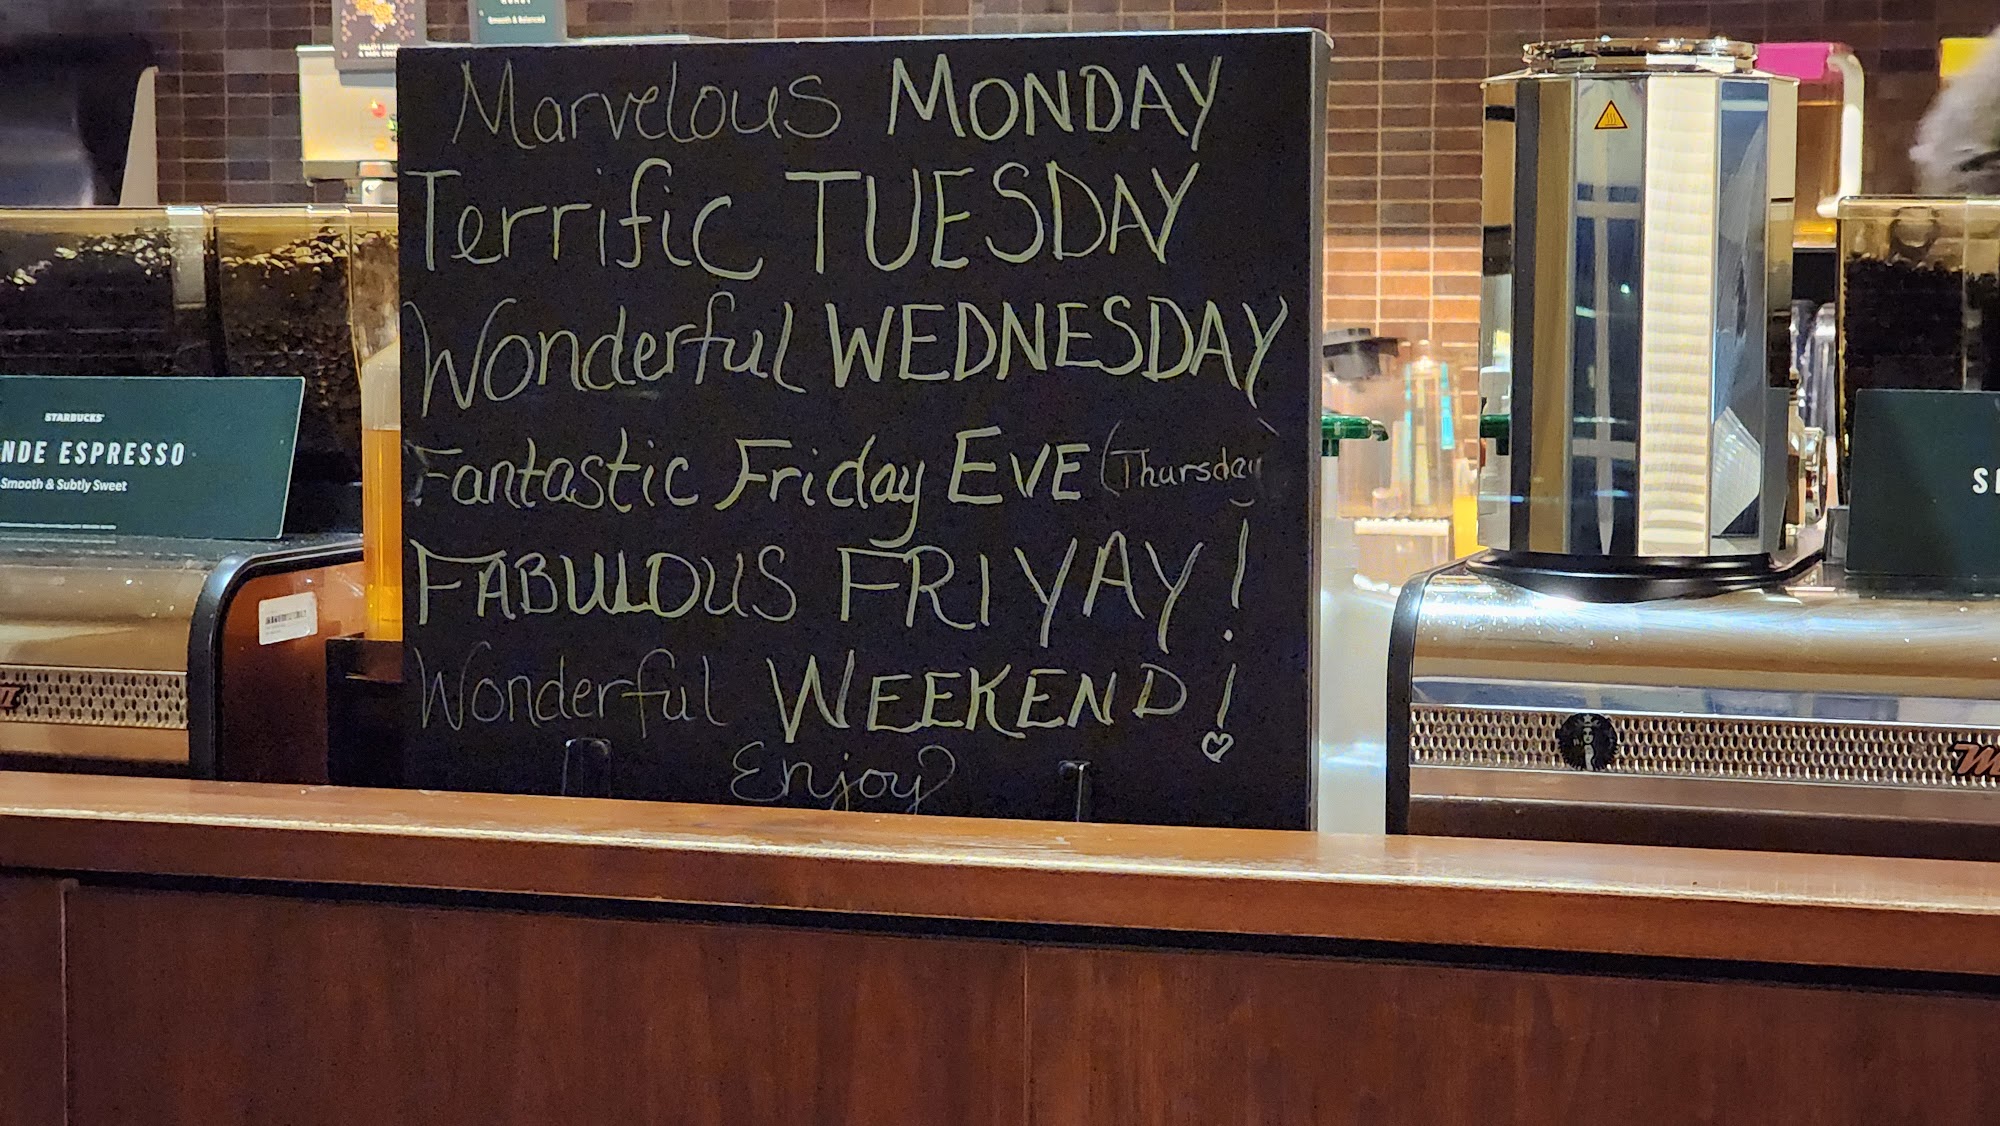 Smooth & Balanced
Marvelous MONDAY
Terrific TUESDAY
Wonderful WEDNESDAY
Fantastic Friday EVE (Thursday
FABULOUS FRIYAY!
Wonderful WEEKEND!
Enjoy
STARBUCKS
NDE ESPRESSO
Smooth & Subtly Sweet